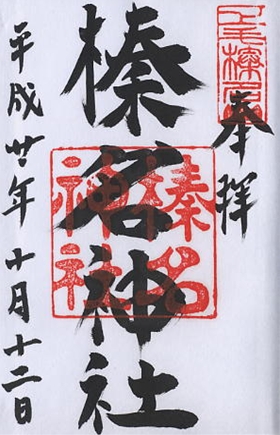 奉拝
上毛榛名
榛名神社
榛名神社
平成廿年十月十二日